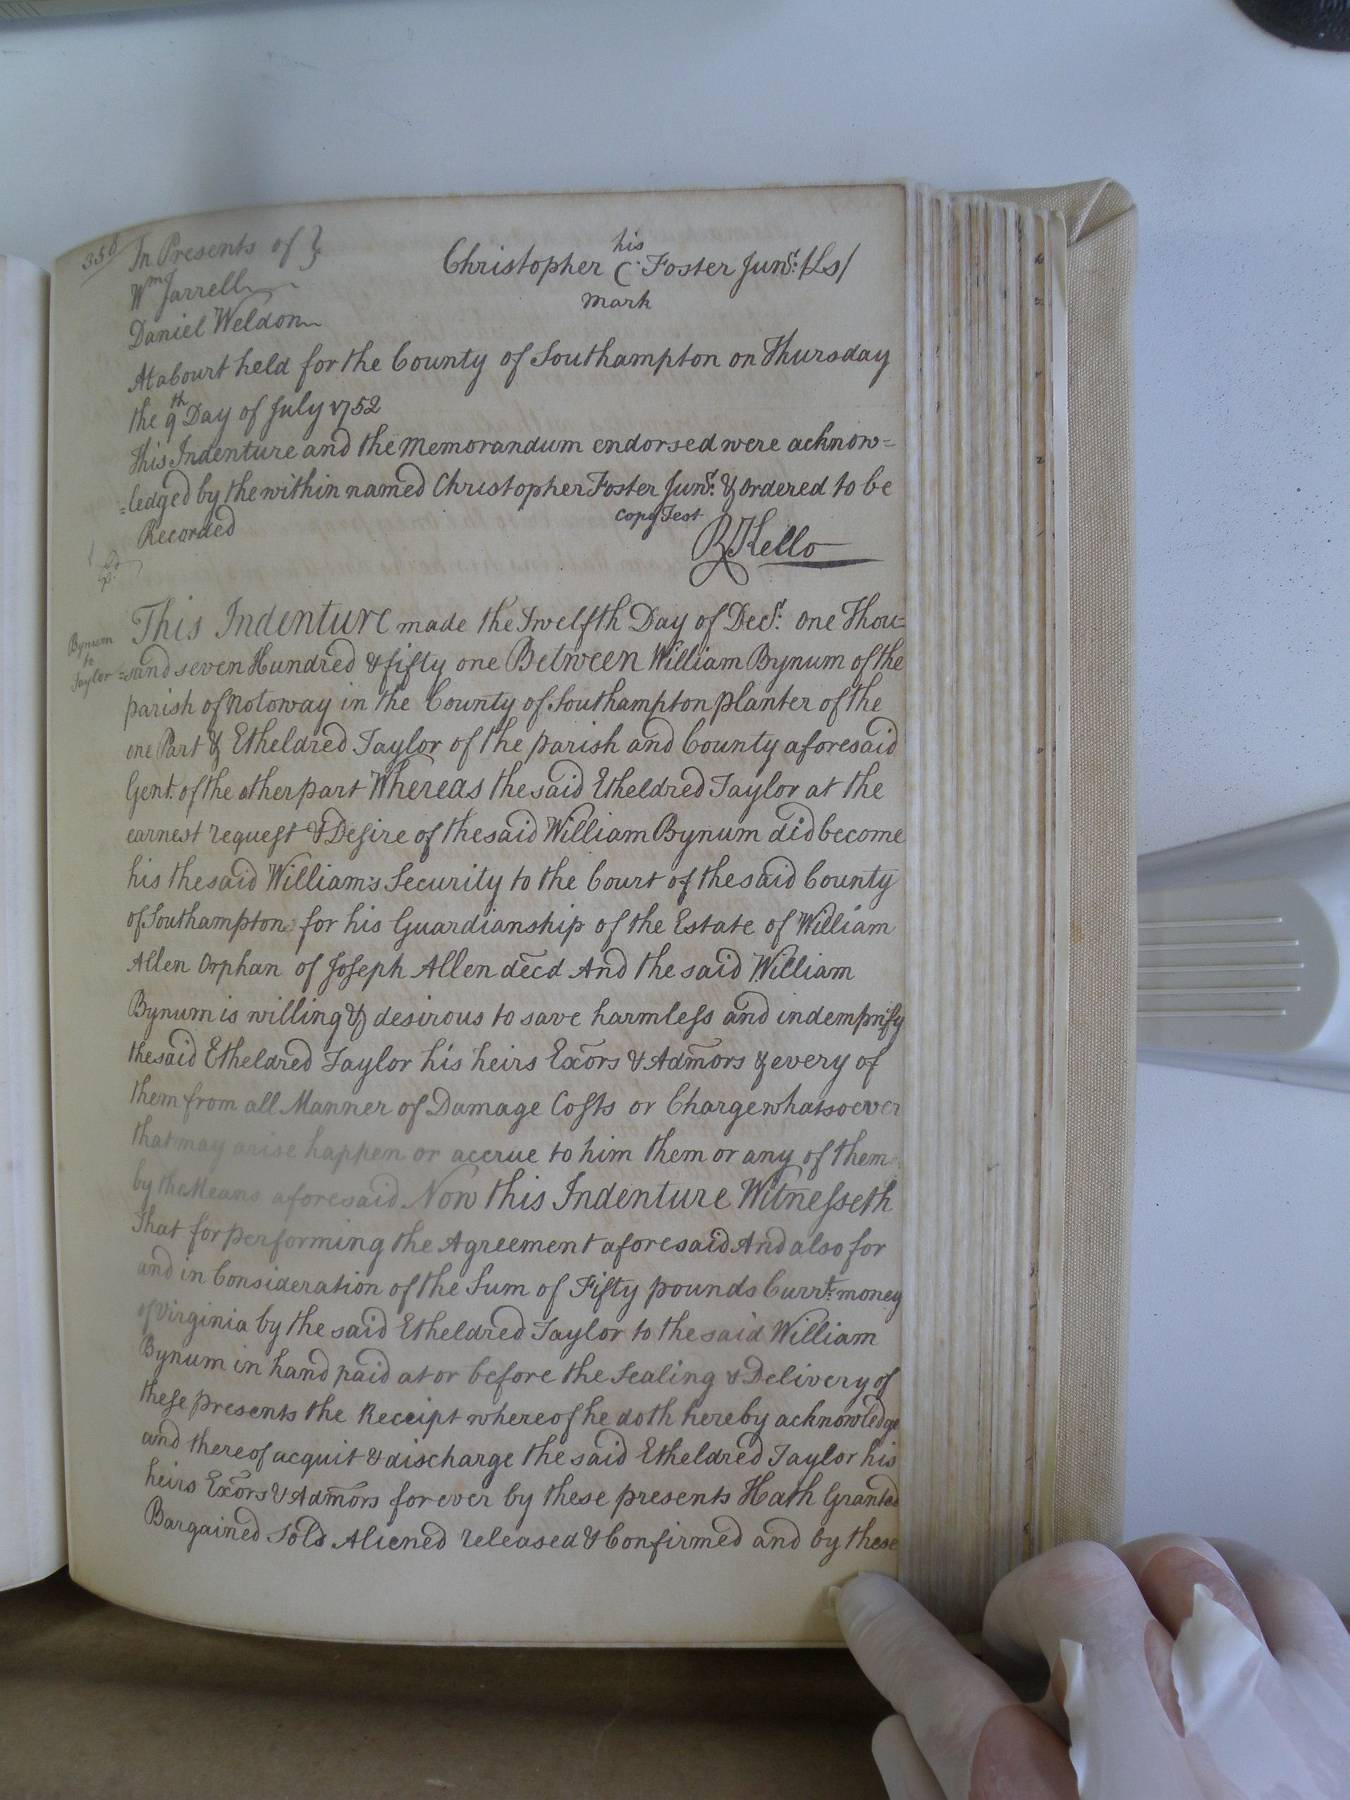 358
In Presents of }
Wm Jarrell
Daniel Weldon
Christopher his C Foster Junr. /Ls/
mark
At a Court held for the County of Southampton on Thursday
the 9th Day of July 1752
This Indenture and the Memorandum endorsed were acknow=
=ledged by the within named Christopher Foster Junr. & ordered to be
Recorded
Copy Test
R Kello
Bynum
to
Taylor
This Indenture made the Twelfth Day of Decr. one Thou=
=sand seven Hundred & fifty one Between William Bynum of the
parish of Notoway in the County of Southampton planter of the
one Part & Etheldred Taylor of the parish and County aforesaid
Gent. of the other part Whereas the said Etheldred Taylor at the
earnest request & Desire of the said William Bynum did become
his the said William's Security to the Court of the said County
of Southampton for his Guardianship of the Estate of William
Allen Orphan of Joseph Allen decd And the said William
Bynum is willing & desirous to save harmless and indempnify
the said Etheldred Taylor his heirs Exors & Admors & every of
them from all Manner of Damage Costs or Charge whatsoever
that may arise happen or accrue to him them or any of them
by the Means aforesaid Now this Indenture Witnesseth
That for performing the Agreement aforesaid And also for
and in Consideration of the Sum of Fifty pounds Currt. money
of Virginia by the said Etheldred Taylor to the said William
Bynum in hand paid at or before the Sealing & Delivery of
these presents the Receipt whereof he doth hereby acknowledge
and thereof acquit & discharge the said Etheldred Taylor his
heirs Exors & Admors forever by these presents Hath Granted
Bargained Sold Aliened released & Confirmed and by these